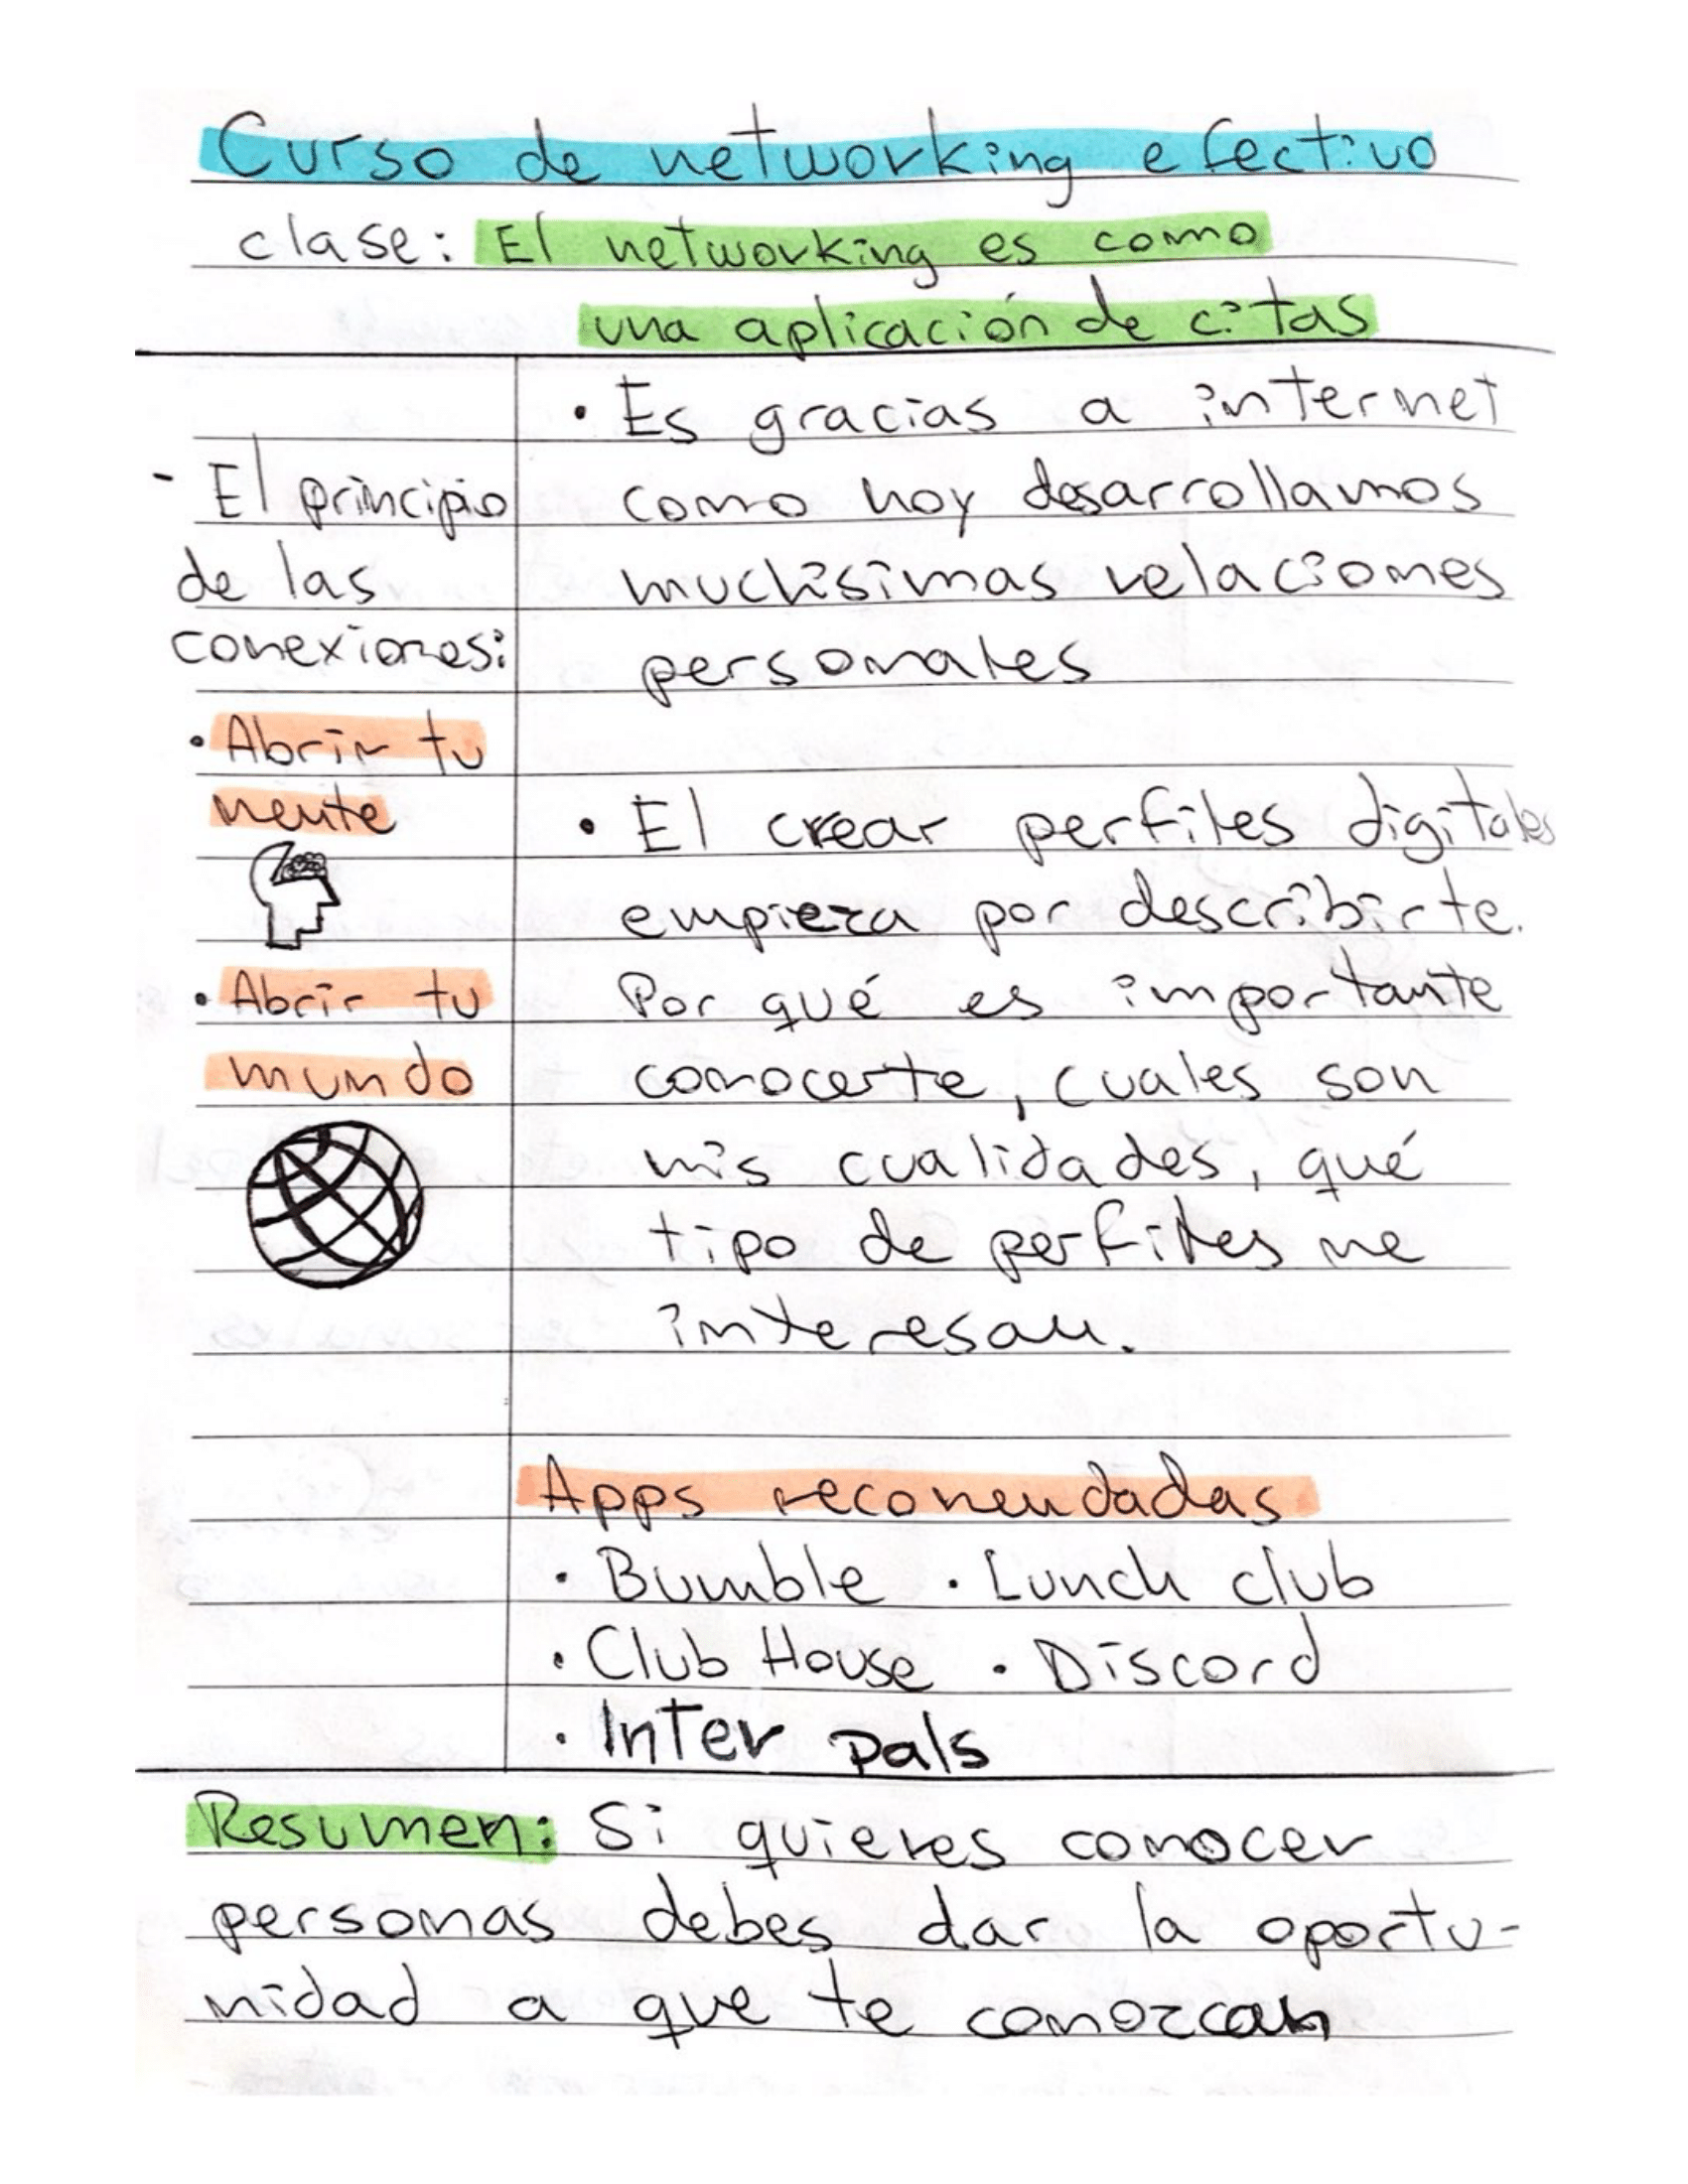 Curso de networking efectivo
clase: El networking es como
una aplicación de citas
- El principio
de las
conexiones:
• Abrir tu
mente
• Abrir tu
mundo
• Es gracias a internet
como hoy desarrollamos
muchisimas relaciones
personales
• El crear perfiles digitales
empieza por describirte.
Por qué es importante
conocerte, cuales son
mis cualidades, qué
tipo de perfiles me
interesan.
Apps recomendadas
• Bumble • Lunch club
• Club House • Discord
• Inter pals
Resumen: Si quieres conocer
personas debes dar la oportu-
nidad a que te conozcan